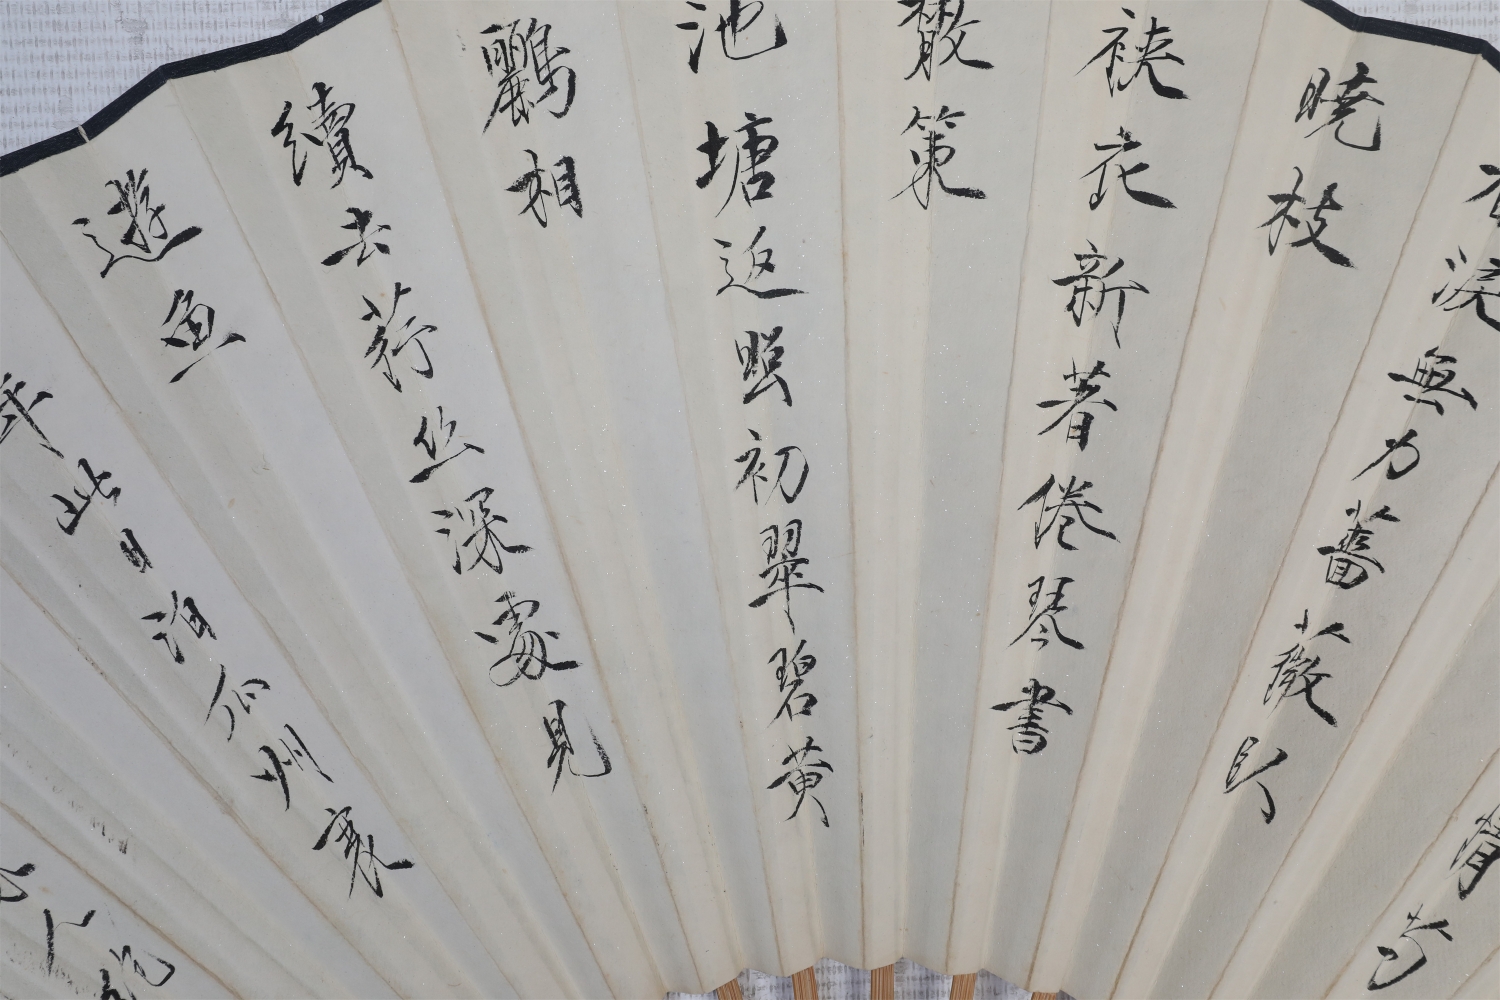 無力薔薇卧
曉枝
裌衣新著倦琴書
散策
池塘返照初翠碧黄
鸝相
續去荇絲深處見
遊魚
此日泊瓜州寰